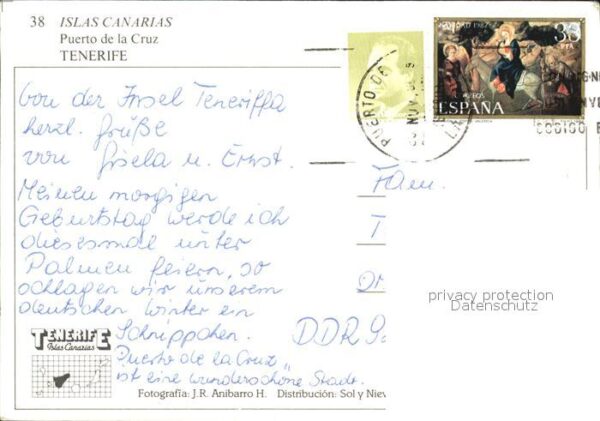 38 ISLAS CANARIAS
Puerto de la Cruz
TENERIFE
NAVIDAD 1982
36
PTA
ESPAÑA
PUERTO DE
NOV
CODIGO
von der Insel Teneriffa
herzl. Grüße
von Gisela u. Ernst.
Meinen morgigen
Geburtstag werde ich
diesesmal unter
Palmen feiern, so
schlagen wir unserem
deutschen Winter ein
Schnippchen.
"Puerto de la Cruz"
ist eine wunderschöne Stadt.
Fam.
T
DDR
privacy protection
Datenschutz
TENERIFE
Islas Canarias
Fotografía: J.R. Anibarro H. Distribución: Sol y Niev